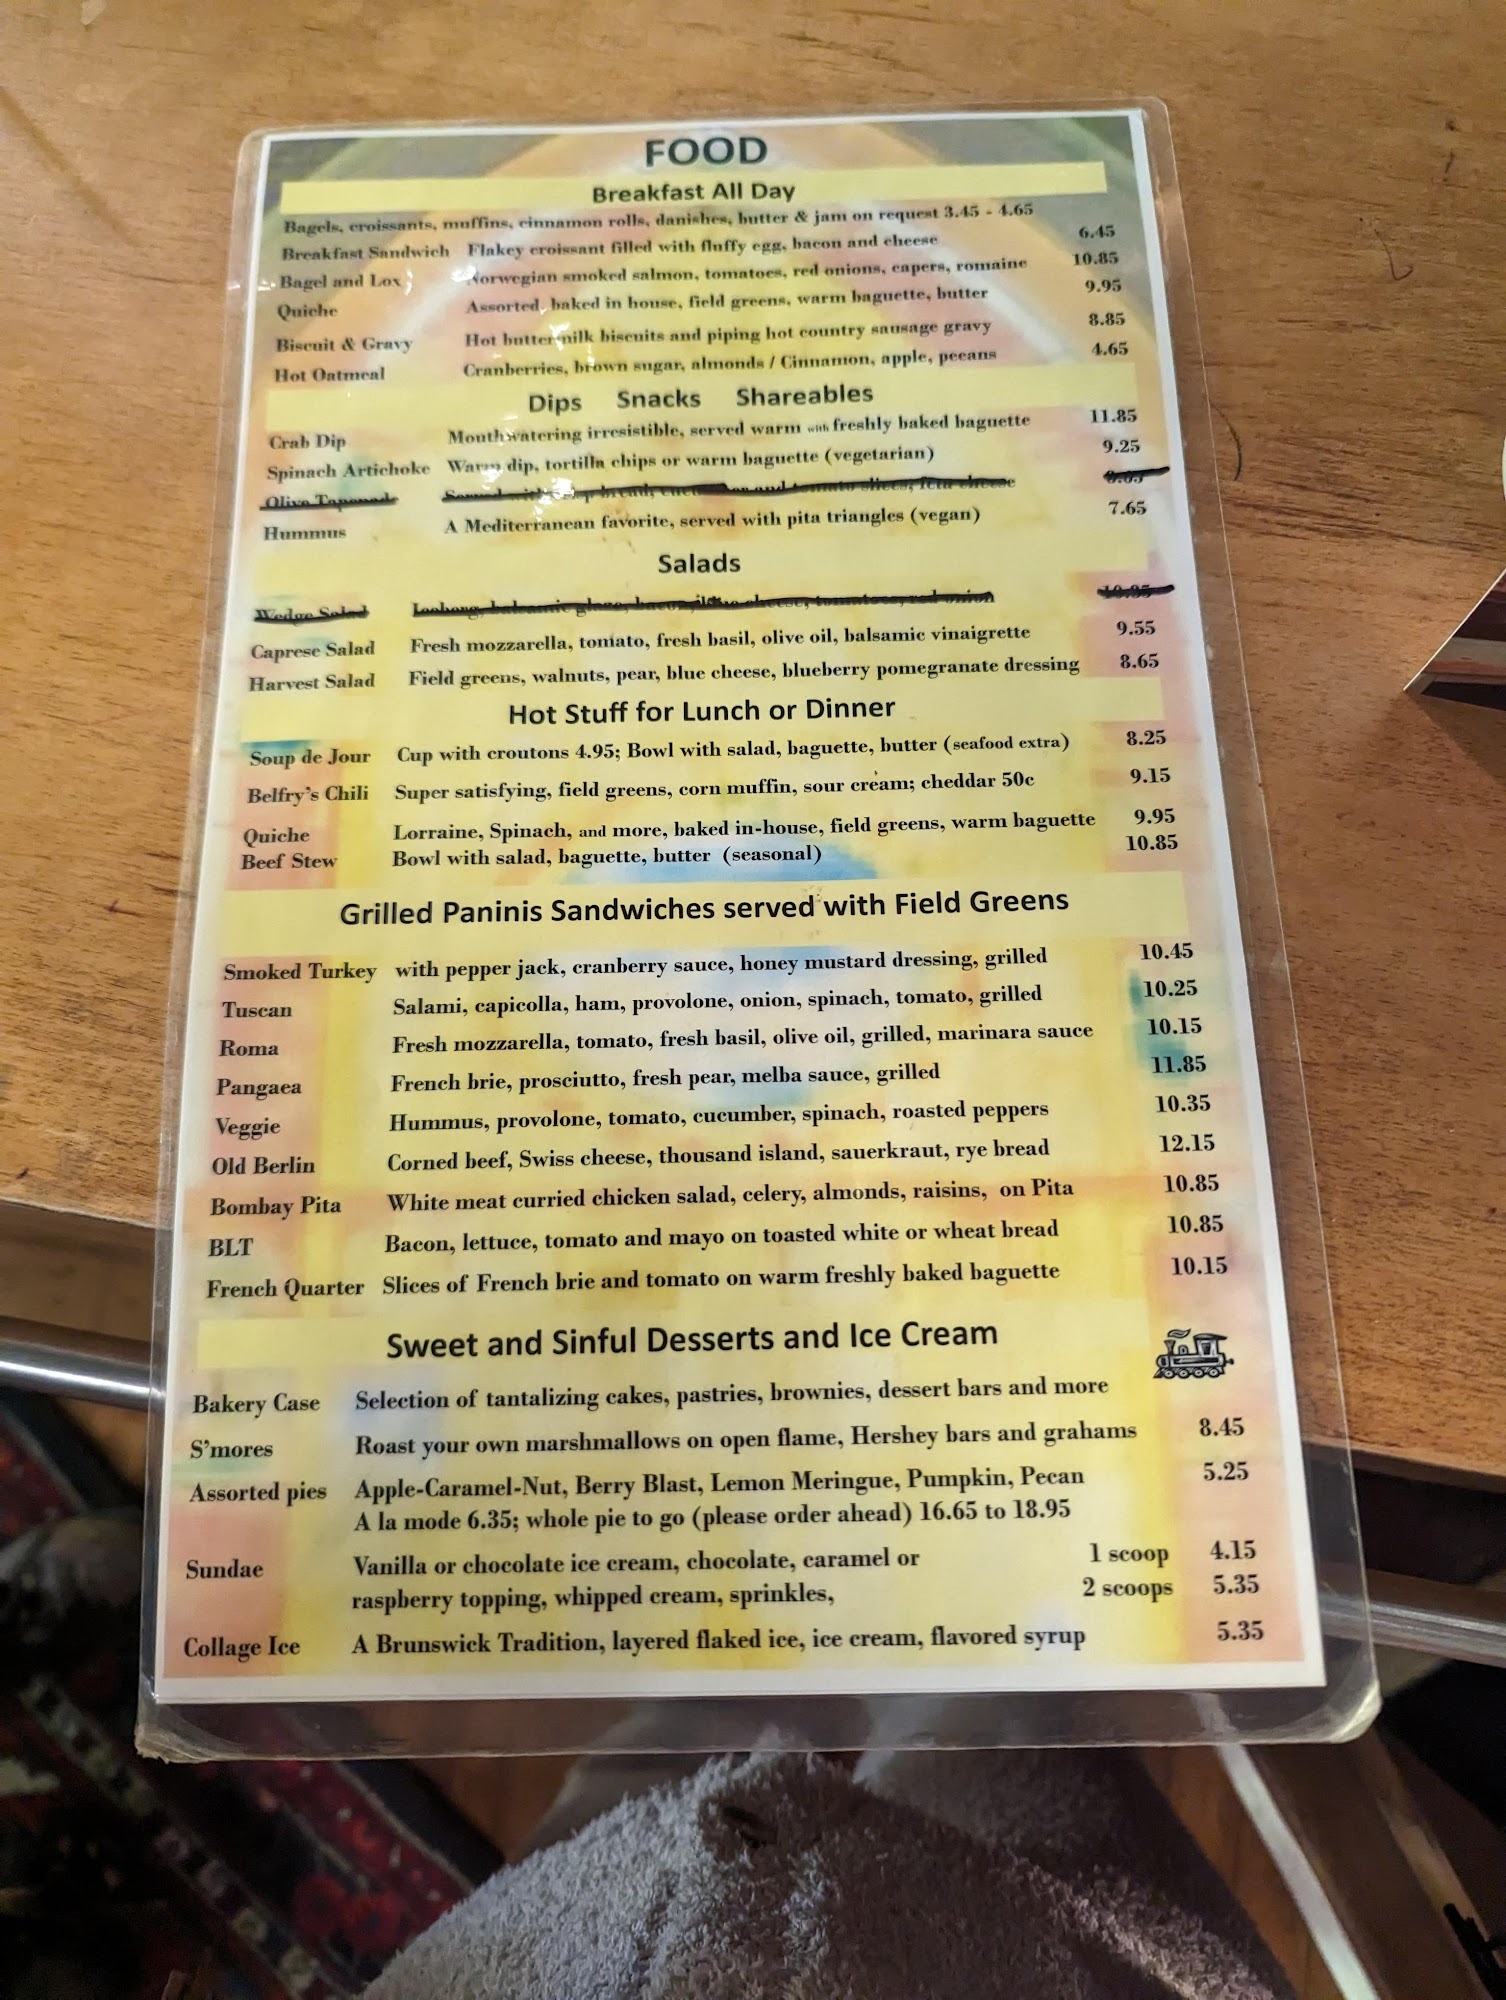 FOOD
Breakfast All Day
Bagels, croissants, muffins, cinnamon rolls, danishes, butter & jam on request 3.45 - 4.65
Breakfast Sandwich Flakey croissant filled with fluffy egg, bacon and cheese 6.45
Bagel and Lox Norwegian smoked salmon, tomatoes, red onions, capers, romaine 10.85
Quiche Assorted, baked in house, field greens, warm baguette, butter 9.95
Biscuit & Gravy Hot buttermilk biscuits and piping hot country sausage gravy 8.85
Hot Oatmeal Cranberries, brown sugar, almonds / Cinnamon, apple, pecans 4.65
Dips Snacks Shareables
Crab Dip Mouthwatering irresistible, served warm with freshly baked baguette 11.85
Spinach Artichoke Warm dip, tortilla chips or warm baguette (vegetarian) 9.25
Olive Tapenade Served with bread, and tomato slices, feta cheese
Hummus A Mediterranean favorite, served with pita triangles (vegan) 7.65
Salads
Wedge Salad Iceberg, balsamic glaze, bacon, blue cheese, tomatoes, red onion
Caprese Salad Fresh mozzarella, tomato, fresh basil, olive oil, balsamic vinaigrette 9.55
Harvest Salad Field greens, walnuts, pear, blue cheese, blueberry pomegranate dressing 8.65
Hot Stuff for Lunch or Dinner
Soup de Jour Cup with croutons 4.95; Bowl with salad, baguette, butter (seafood extra) 8.25
Belfry's Chili Super satisfying, field greens, corn muffin, sour cream; cheddar 50c 9.15
Quiche Lorraine, Spinach, and more, baked in-house, field greens, warm baguette 9.95
Beef Stew Bowl with salad, baguette, butter (seasonal) 10.85
Grilled Paninis Sandwiches served with Field Greens
Smoked Turkey with pepper jack, cranberry sauce, honey mustard dressing, grilled 10.45
Tuscan Salami, capicolla, ham, provolone, onion, spinach, tomato, grilled 10.25
Roma Fresh mozzarella, tomato, fresh basil, olive oil, grilled, marinara sauce 10.15
Pangaea French brie, prosciutto, fresh pear, melba sauce, grilled 11.85
Veggie Hummus, provolone, tomato, cucumber, spinach, roasted peppers 10.35
Old Berlin Corned beef, Swiss cheese, thousand island, sauerkraut, rye bread 12.15
Bombay Pita White meat curried chicken salad, celery, almonds, raisins, on Pita 10.85
BLT Bacon, lettuce, tomato and mayo on toasted white or wheat bread 10.85
French Quarter Slices of French brie and tomato on warm freshly baked baguette 10.15
Sweet and Sinful Desserts and Ice Cream
Bakery Case Selection of tantalizing cakes, pastries, brownies, dessert bars and more
S'mores Roast your own marshmallows on open flame, Hershey bars and grahams 8.45
Assorted pies Apple-Caramel-Nut, Berry Blast, Lemon Meringue, Pumpkin, Pecan 5.25
A la mode 6.35; whole pie to go (please order ahead) 16.65 to 18.95
Sundae Vanilla or chocolate ice cream, chocolate, caramel or 1 scoop 4.15
raspberry topping, whipped cream, sprinkles, 2 scoops 5.35
Collage Ice A Brunswick Tradition, layered flaked ice, ice cream, flavored syrup 5.35